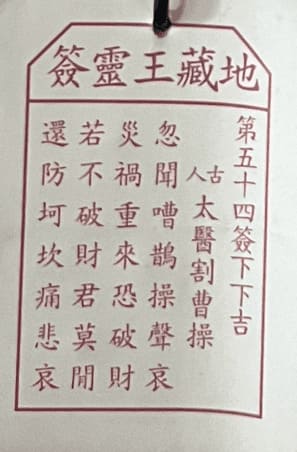 地藏王靈簽
第五十四簽下下吉
古人
太醫割曹操
忽聞嘈鵲操聲哀
災禍重來恐破財
若不破財君莫閒
還防坷坎痛悲哀